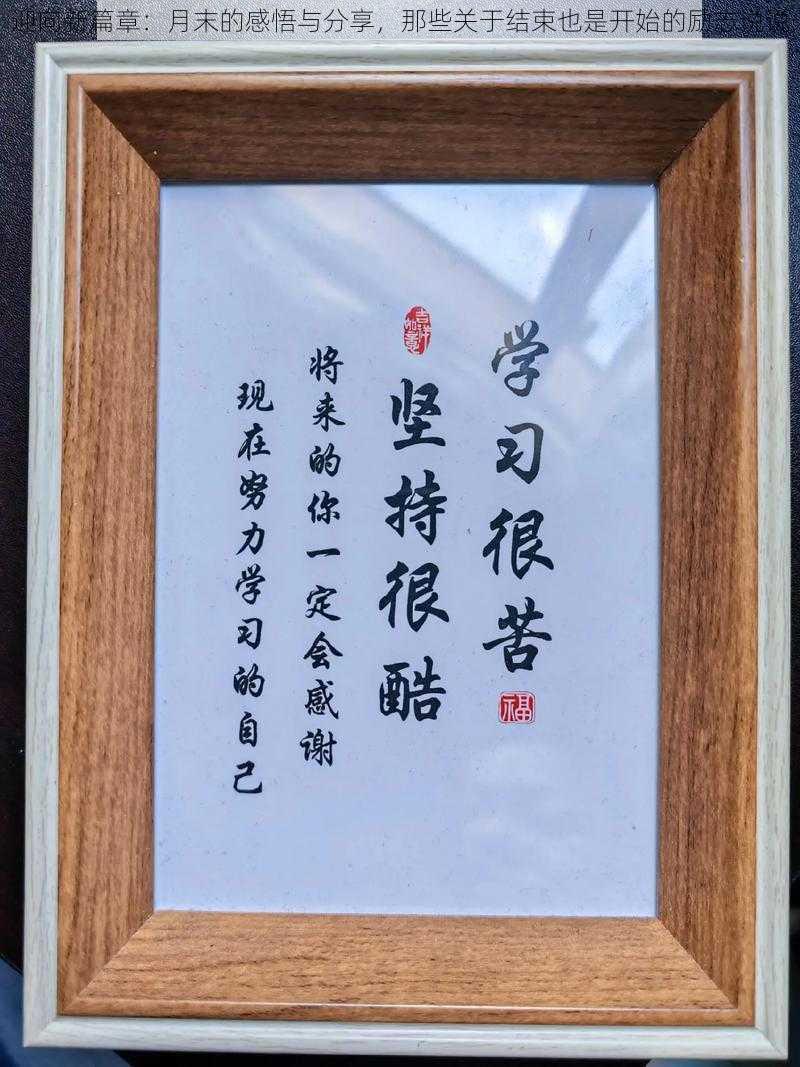 迎向新篇章：月末的感悟与分享，那些关于结束也是开始的励志说说
学习很苦
福
吉祥如意
坚持很酷
将来的你一定会感谢
现在努力学习的自己